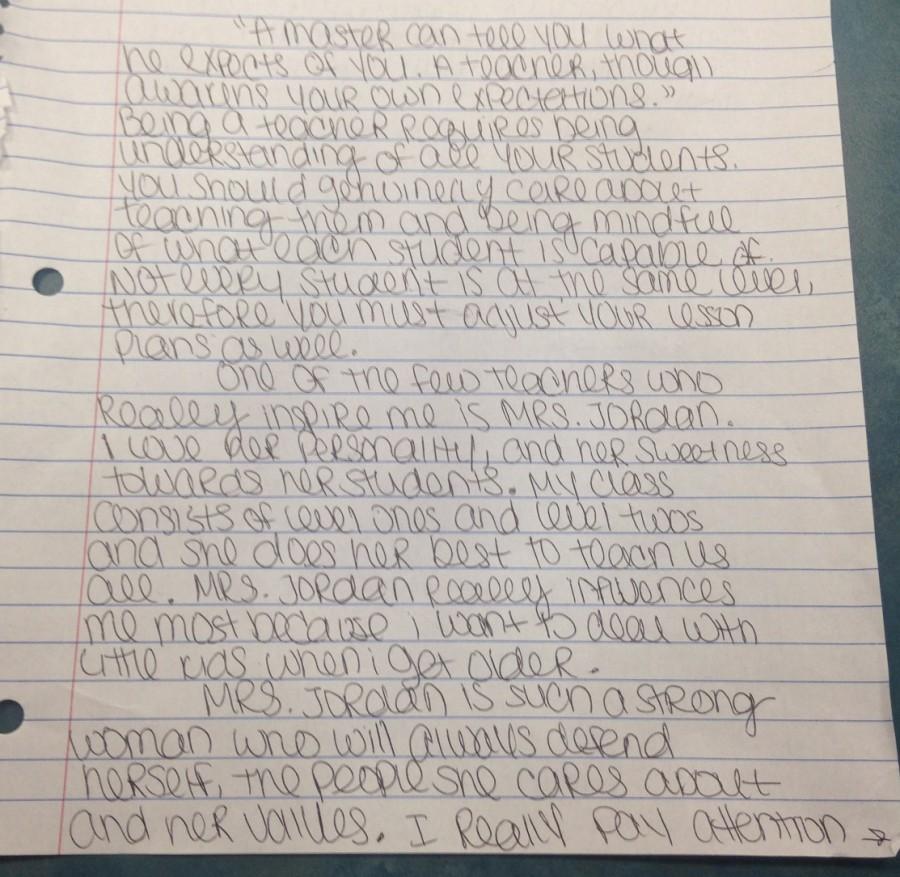 "A master can tell you what
he expects of you. A teacher, though
awakens your own expectertions."
Being a teacher requires being
understanding of all your students.
you should genuinely care about
teaching them and being mindful
of what each student is capable of.
Not every student is at the same level,
therefore you must adjust your lesson
plans as well.
One of the few teachers who
Really inspire me is MRS. Jordan.
I love her personality, and her sweetness
towards her students. My class
consists of level ones and level twos
and she does her best to teach us
all. MRS. Jordan really influences
me most because i want to deal with
little kids when i get older.
MRS. Jordan is such a strong
woman who will always defend
herself, the people she cares about
and her values. I Really Pay attention →